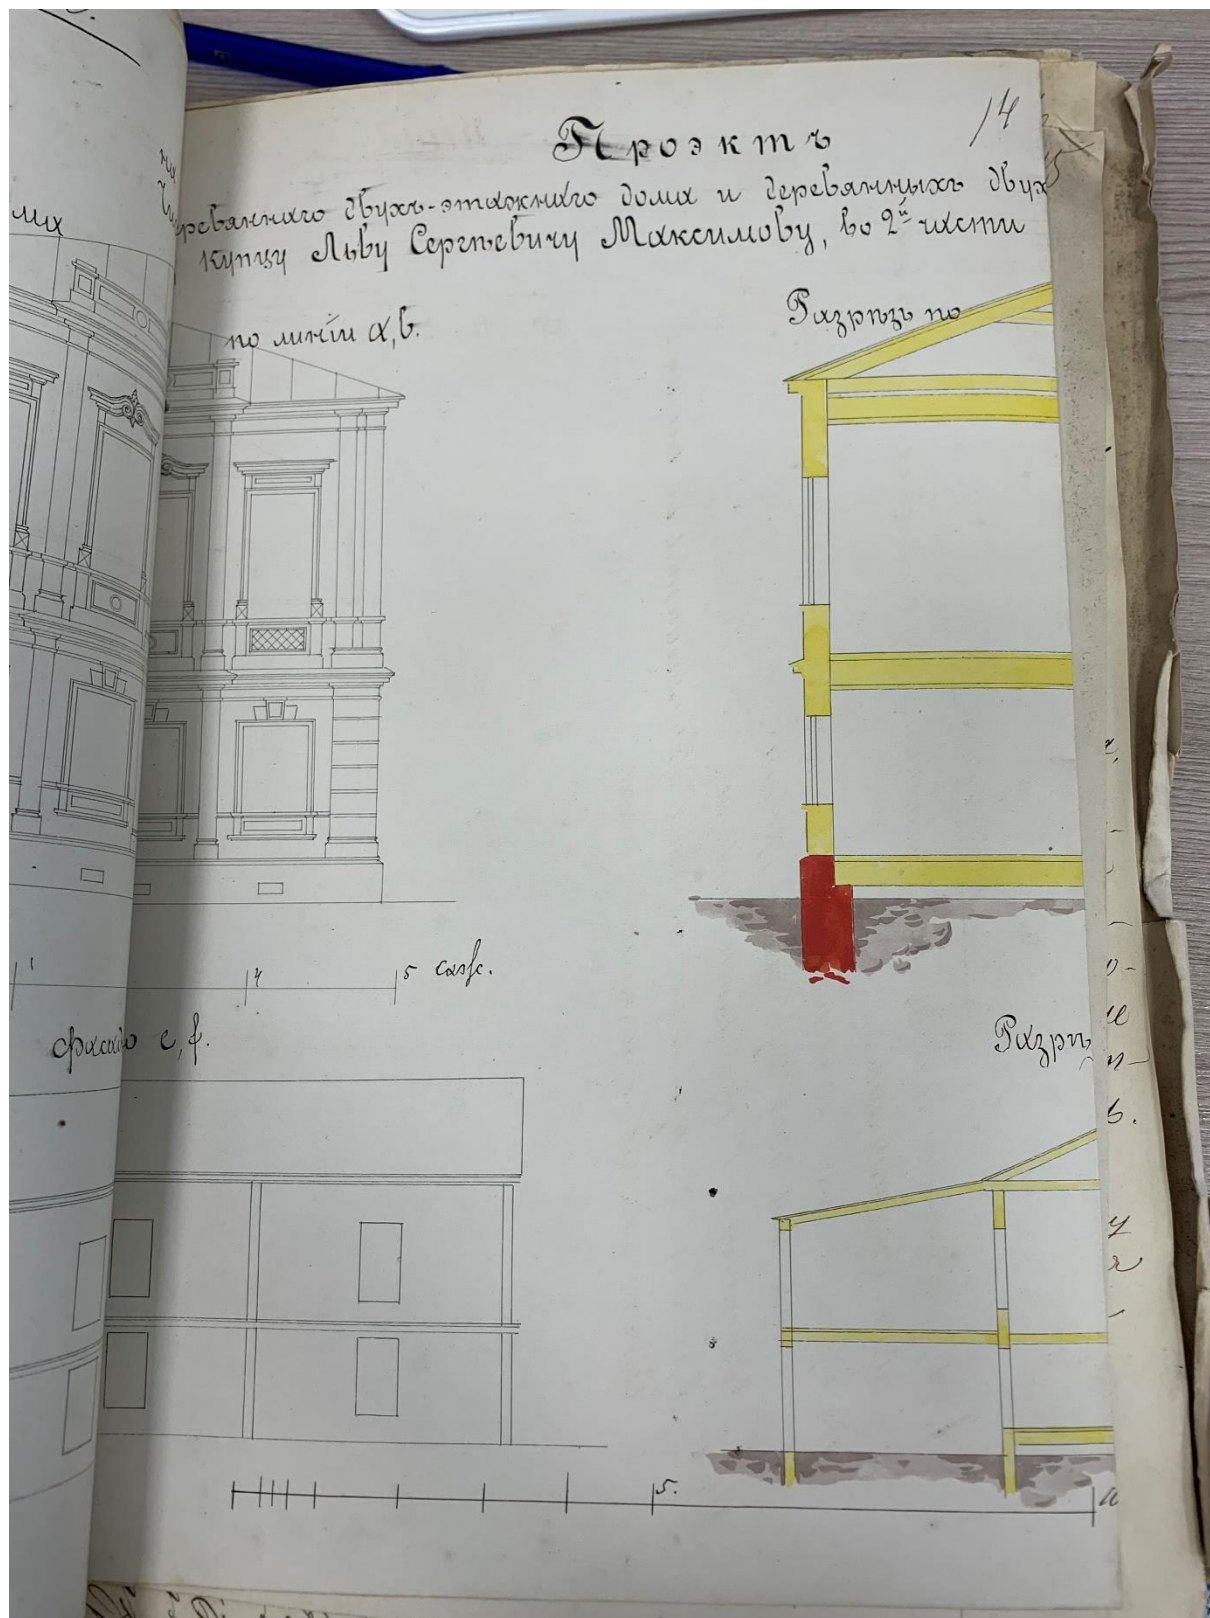 14
Проэктъ
ревяннаго двухъ-этажнаго дома и деревянныхъ двух
купцу Льву Сергѣевичу Максимову, во 2й части
по линіи a, b.
Разрѣзъ по
4 5 саж.
фасадъ e, f.
Разрѣ
5.